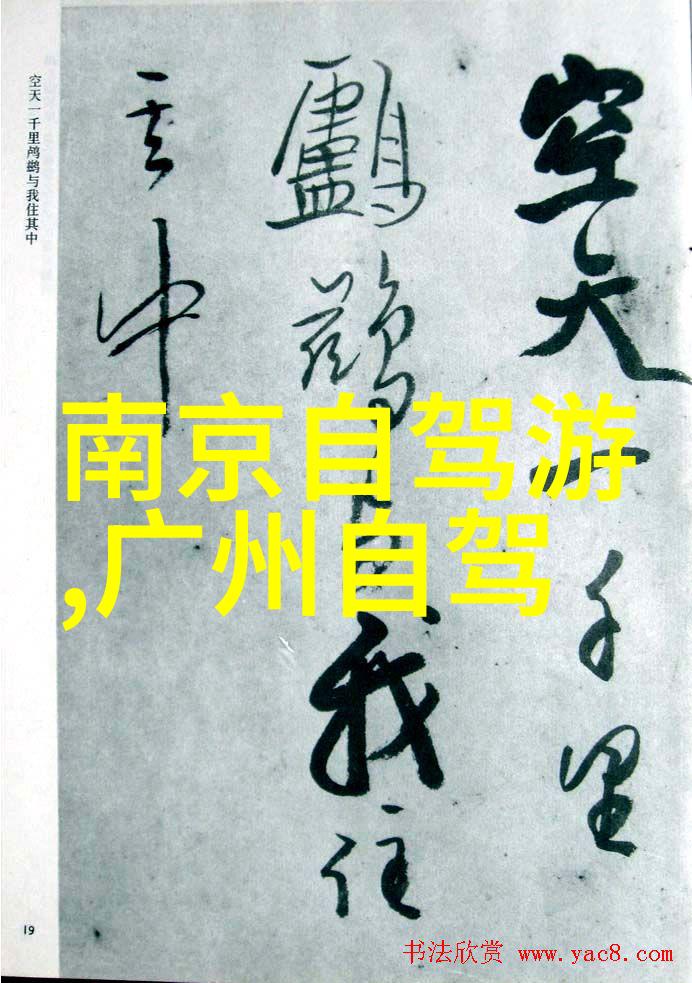 空天一千里
鸕鶿与我住
其中
空天一千里鸬鹚与我住其中
南京自驾游
,广州自驾
19
书法欣赏 www.yac8.com